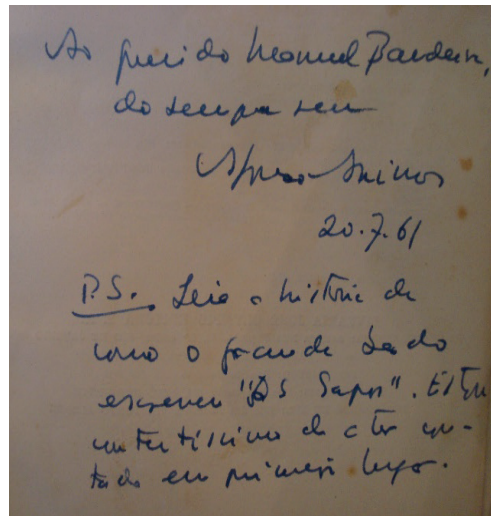 Ao querido Manuel Bandeira,
do sempre seu
Afonso Arinos
20.7.61
P.S. Leia a história de
como o grande Bardo
escreveu "Os Sapos". Estou
contentíssimo de a ter con-
tado em primeiro lugar.